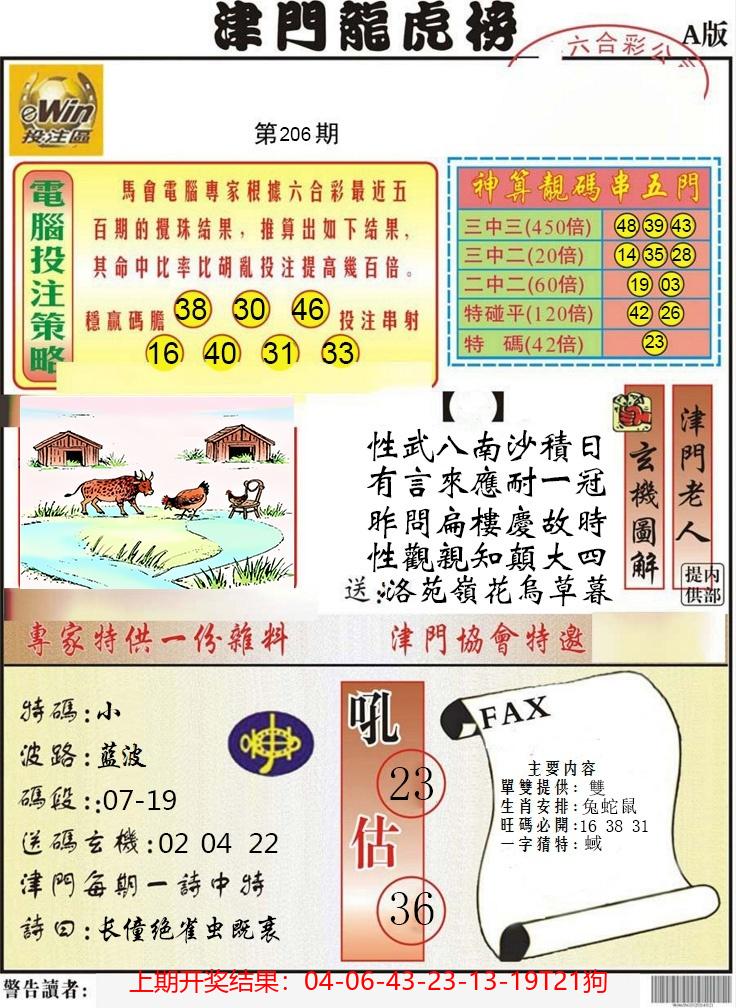 津門龍虎榜
A版
六合彩公
eWin
投注區
第206期
電腦投注策略
馬會電腦專家根據六合彩最近五
百期的攪珠结果，推算出如下结果，
其命中比率比胡亂投注提高幾百倍。
穩贏碼膽 38 30 46 投注串射
16 40 31 33
神算靚碼串五門
三中三(450倍) 48 39 43
三中二(20倍) 14 35 28
二中二(60倍) 19 03
特碰平(120倍) 42 26
特 碼(42倍) 23
【 】
性武八南沙積日
有言來應耐一冠
昨問扁樓慶故時
性觀親知顛大四
送:洛苑嶺花烏草暮
玄機圖解
津門老人
内部提供
專家特供一份雜料
津門協會特邀
特碼:小
波路:藍波
碼段::07-19
送碼玄機:02 04 22
津門每期一詩中特
詩曰:长僮绝雀虫既裹
吼 23
估 36
FAX
主要内容
單雙提供: 雙
生肖安排:兔蛇鼠
旺碼必開:16 38 31
一字猜特: 蜮
警告讀者:
上期开奖结果：04-06-43-23-13-19T21狗